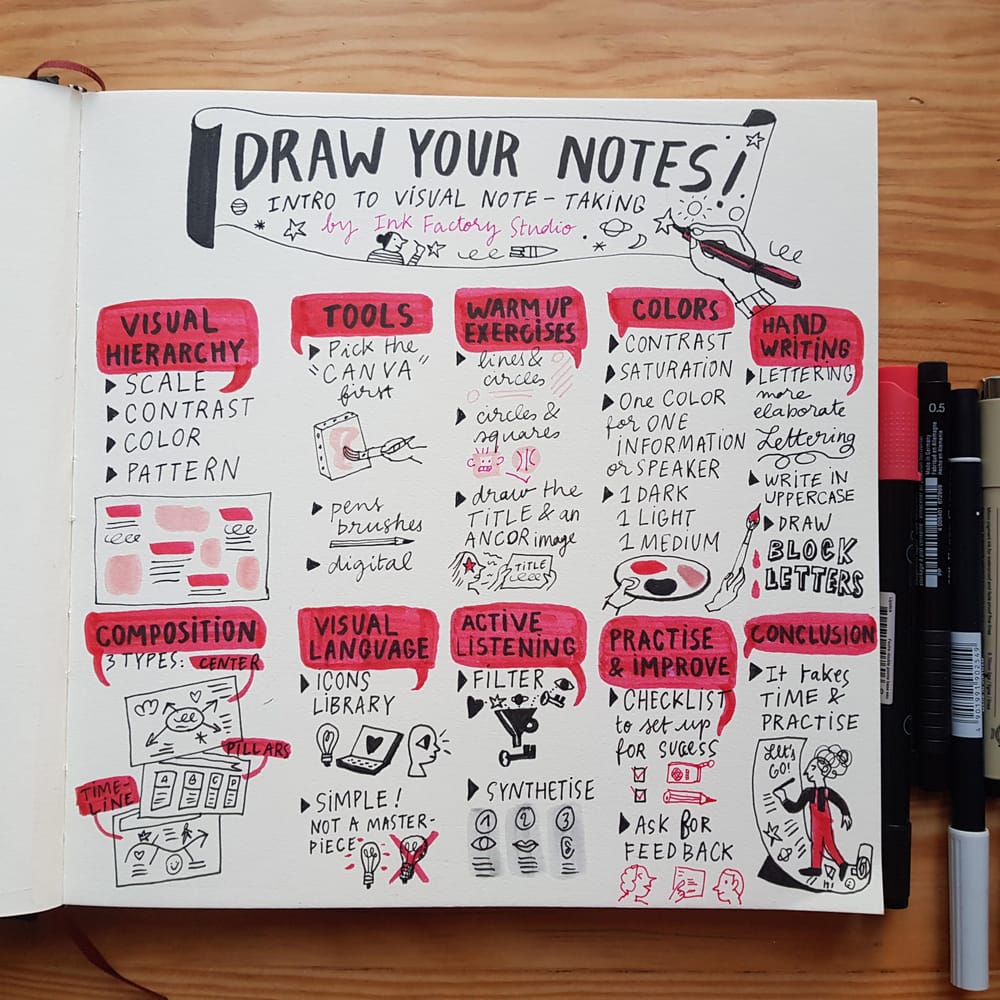 DRAW YOUR NOTES!
INTRO TO VISUAL NOTE-TAKING
by Ink Factory Studio
VISUAL
HIERARCHY
SCALE
CONTRAST
COLOR
PATTERN
TOOLS
Pick the
"CANVA"
first
pens
brushes
digital
WARM UP
EXERCISES
lines &
circles
circles &
squares
draw the
TITLE & an
ANCOR image
TITLE
COLORS
CONTRAST
SATURATION
One COLOR
for ONE
INFORMATION
or SPEAKER
1 DARK
1 LIGHT
1 MEDIUM
HAND
WRITING
LETTERING
more
elaborate
Lettering
WRITE IN
UPPERCASE
DRAW
BLOCK
LETTERS
COMPOSITION
3 TYPES: CENTER
PILLARS
A B C D
TIME-
LINE
VISUAL
LANGUAGE
ICONS
LIBRARY
SIMPLE!
NOT A MASTER-
PIECE
ACTIVE
LISTENING
FILTER
SYNTHETISE
1 2 3
PRACTISE
& IMPROVE
CHECKLIST
to set up
for sucess
ASK FOR
FEEDBACK
CONCLUSION
It takes
TIME &
PRACTISE
Let's
GO!
Hi
0.5
Made in Germany
Fabriqué en Allemagne
4 901991 902549